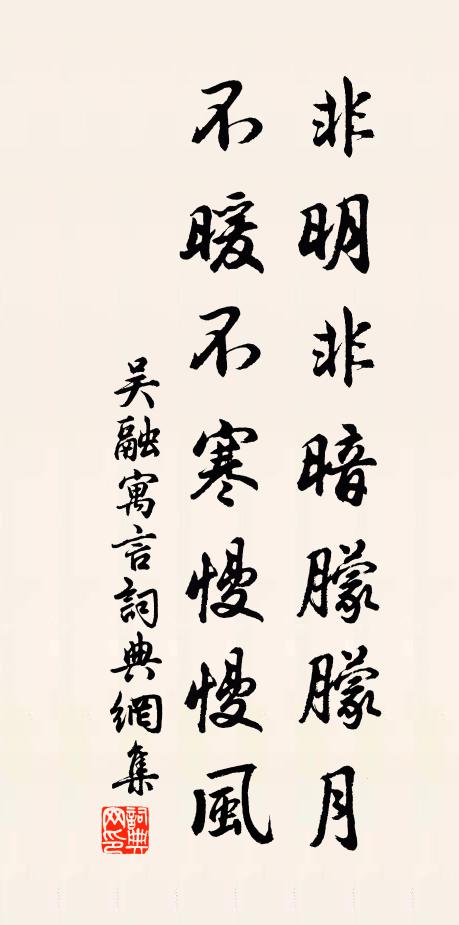 非明非暗朦朦月
不暖不寒慢慢風
吴融寓言詞典網集
詞典网印